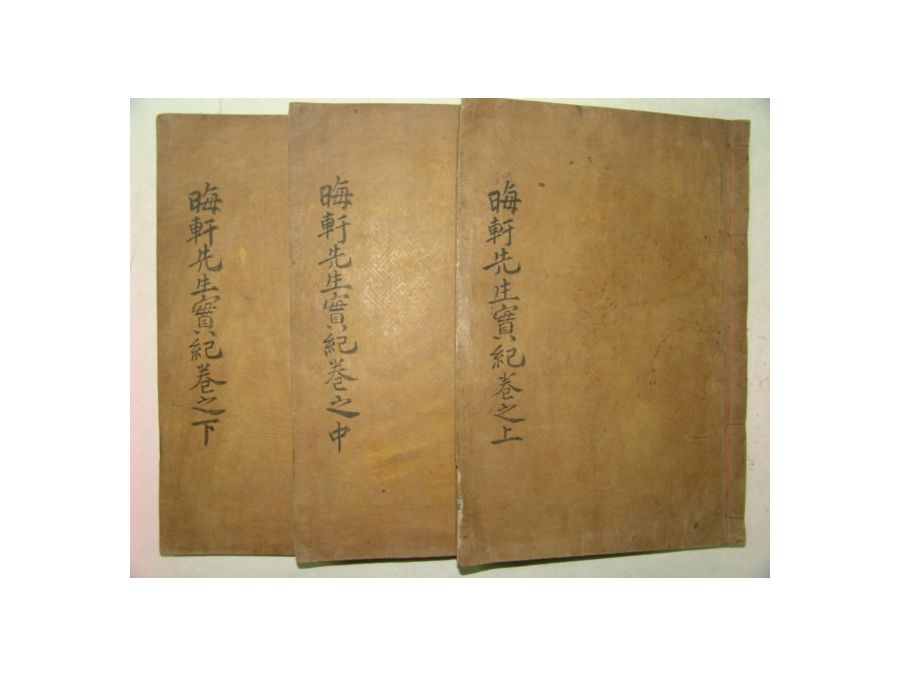 晦軒先生實紀卷之上
晦軒先生實紀卷之中
晦軒先生實紀卷之下